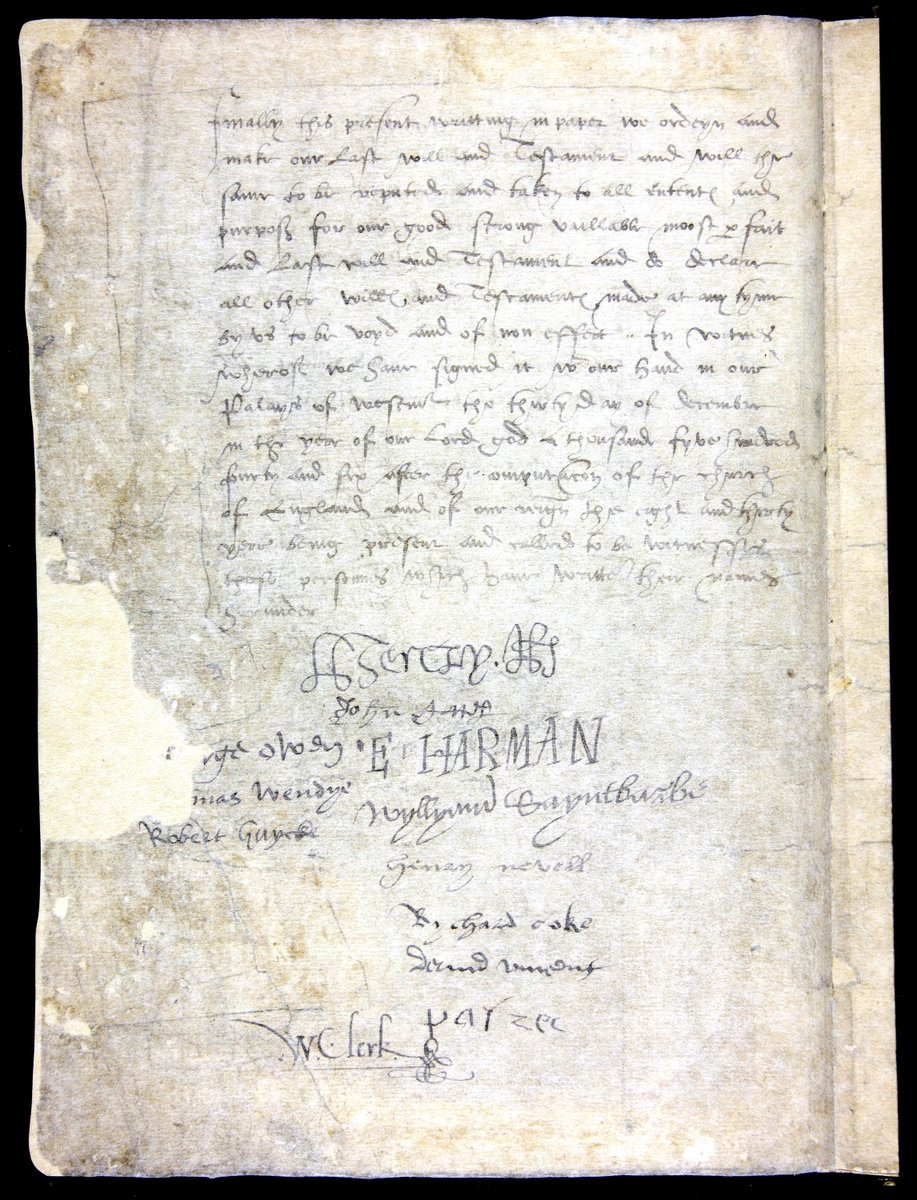 Finally this present writting in paper we ordeyn and
make our last will and Testament and will the
same to be reputed and taken to all ententes and
purposes for our good strong vaillable moost p̱fait
and last will and Testament and do declare
all other willes and Testamentes made at any tyme
by us to be voyd and of non effect. In witnes
wherof we have signed it wt our hand in our
Palays of westmr the thirty day of december
in the yere of our lord god a thousande fyve hundred
fourty and six after the computacon of the church
of Englande and of our reign the eight and thirty
yere being present and called to be witnesses
these persones which have written their names
herunder
HENRY R
John Gates
ge owen E HARMAN
mas Wendye Wyllyam Sayntbarbe
Robert huycke
henry nevell
Rychard coke
david vincent
patec
W Clerk